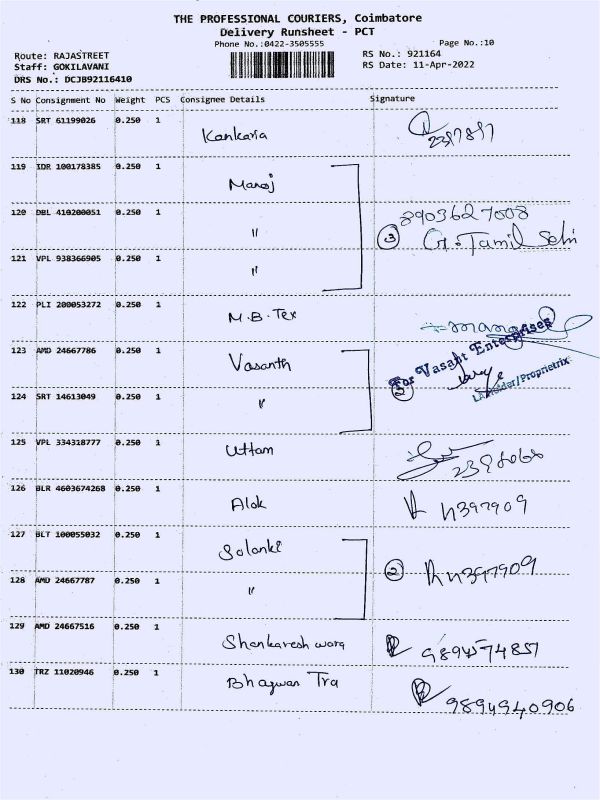 THE PROFESSIONAL COURIERS, Coimbatore
Delivery Runsheet - PCT
Phone No.:0422-3505555
Page No.:10
Route: RAJASTREET
RS No.: 921164
Staff: GOKILAVANI
RS Date: 11-Apr-2022
DRS No.: DCJB92116410
S No Consignment No Weight PCS Consignee Details Signature
118 SRT 61199026 0.250 1 Kankaria
119 IDR 100178385 0.250 1 Manoj
120 DBL 410200051 0.250 1 " 8903627008
3 G. Tamil Selvi
121 VPL 938366905 0.250 1 "
122 PLI 200053272 0.250 1 M.B. Tex
123 AMD 24667786 0.250 1 Vasanth For Vasant Enterprises
2
124 SRT 14613049 0.250 1 "
125 VPL 334318777 0.250 1 Uttam
126 BLR 4603674268 0.250 1 Alok
127 BLT 100055032 0.250 1 Solanki
2
128 AMD 24667787 0.250 1 "
129 AMD 24667516 0.250 1
130 TRZ 11020946 0.250 1 Bhagwan Tra
9894940906